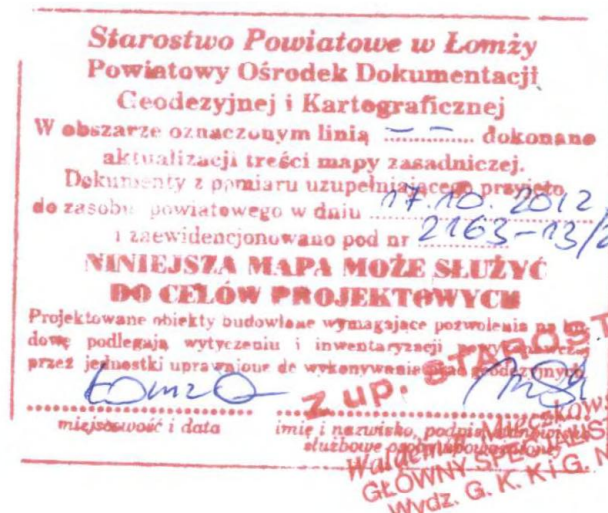 Starostwo Powiatowe w Łomży
Powiatowy Ośrodek Dokumentacji
Geodezyjnej i Kartograficznej
W obszarze oznaczonym linią – – dokonano
aktualizacji treści mapy zasadniczej.
Dokumenty z pomiaru uzupełniającego przyjęto
do zasobu powiatowego w dniu 17.10.2012
i zaewidencjonowano pod nr 2163-13/2
NINIEJSZA MAPA MOŻE SŁUŻYĆ
DO CELÓW PROJEKTOWYCH
Projektowane obiekty budowlane wymagające pozwolenia na bu-
dowę podlegają wytyczeniu i inwentaryzacji
przez jednostki uprawnione do wykonywania prac geodezyjnych
Łomża
z up. STAROST
miejscowość i data
imię i nazwisko, podpis
służbowe
Waldemar
GŁÓWNY SPEC
Wydz. G. K. K i G. N